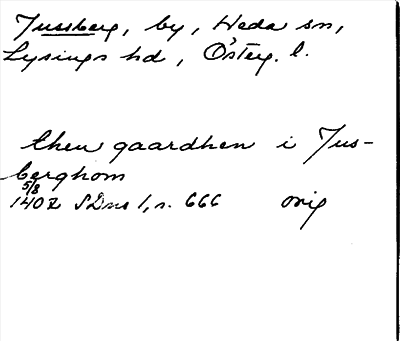 Jussberg, by, Heda sn,
Lysings hd, Österg. l.
then gaardhen i Jus-
berghom
5/8
1402 SDns 1, n. 666 orig